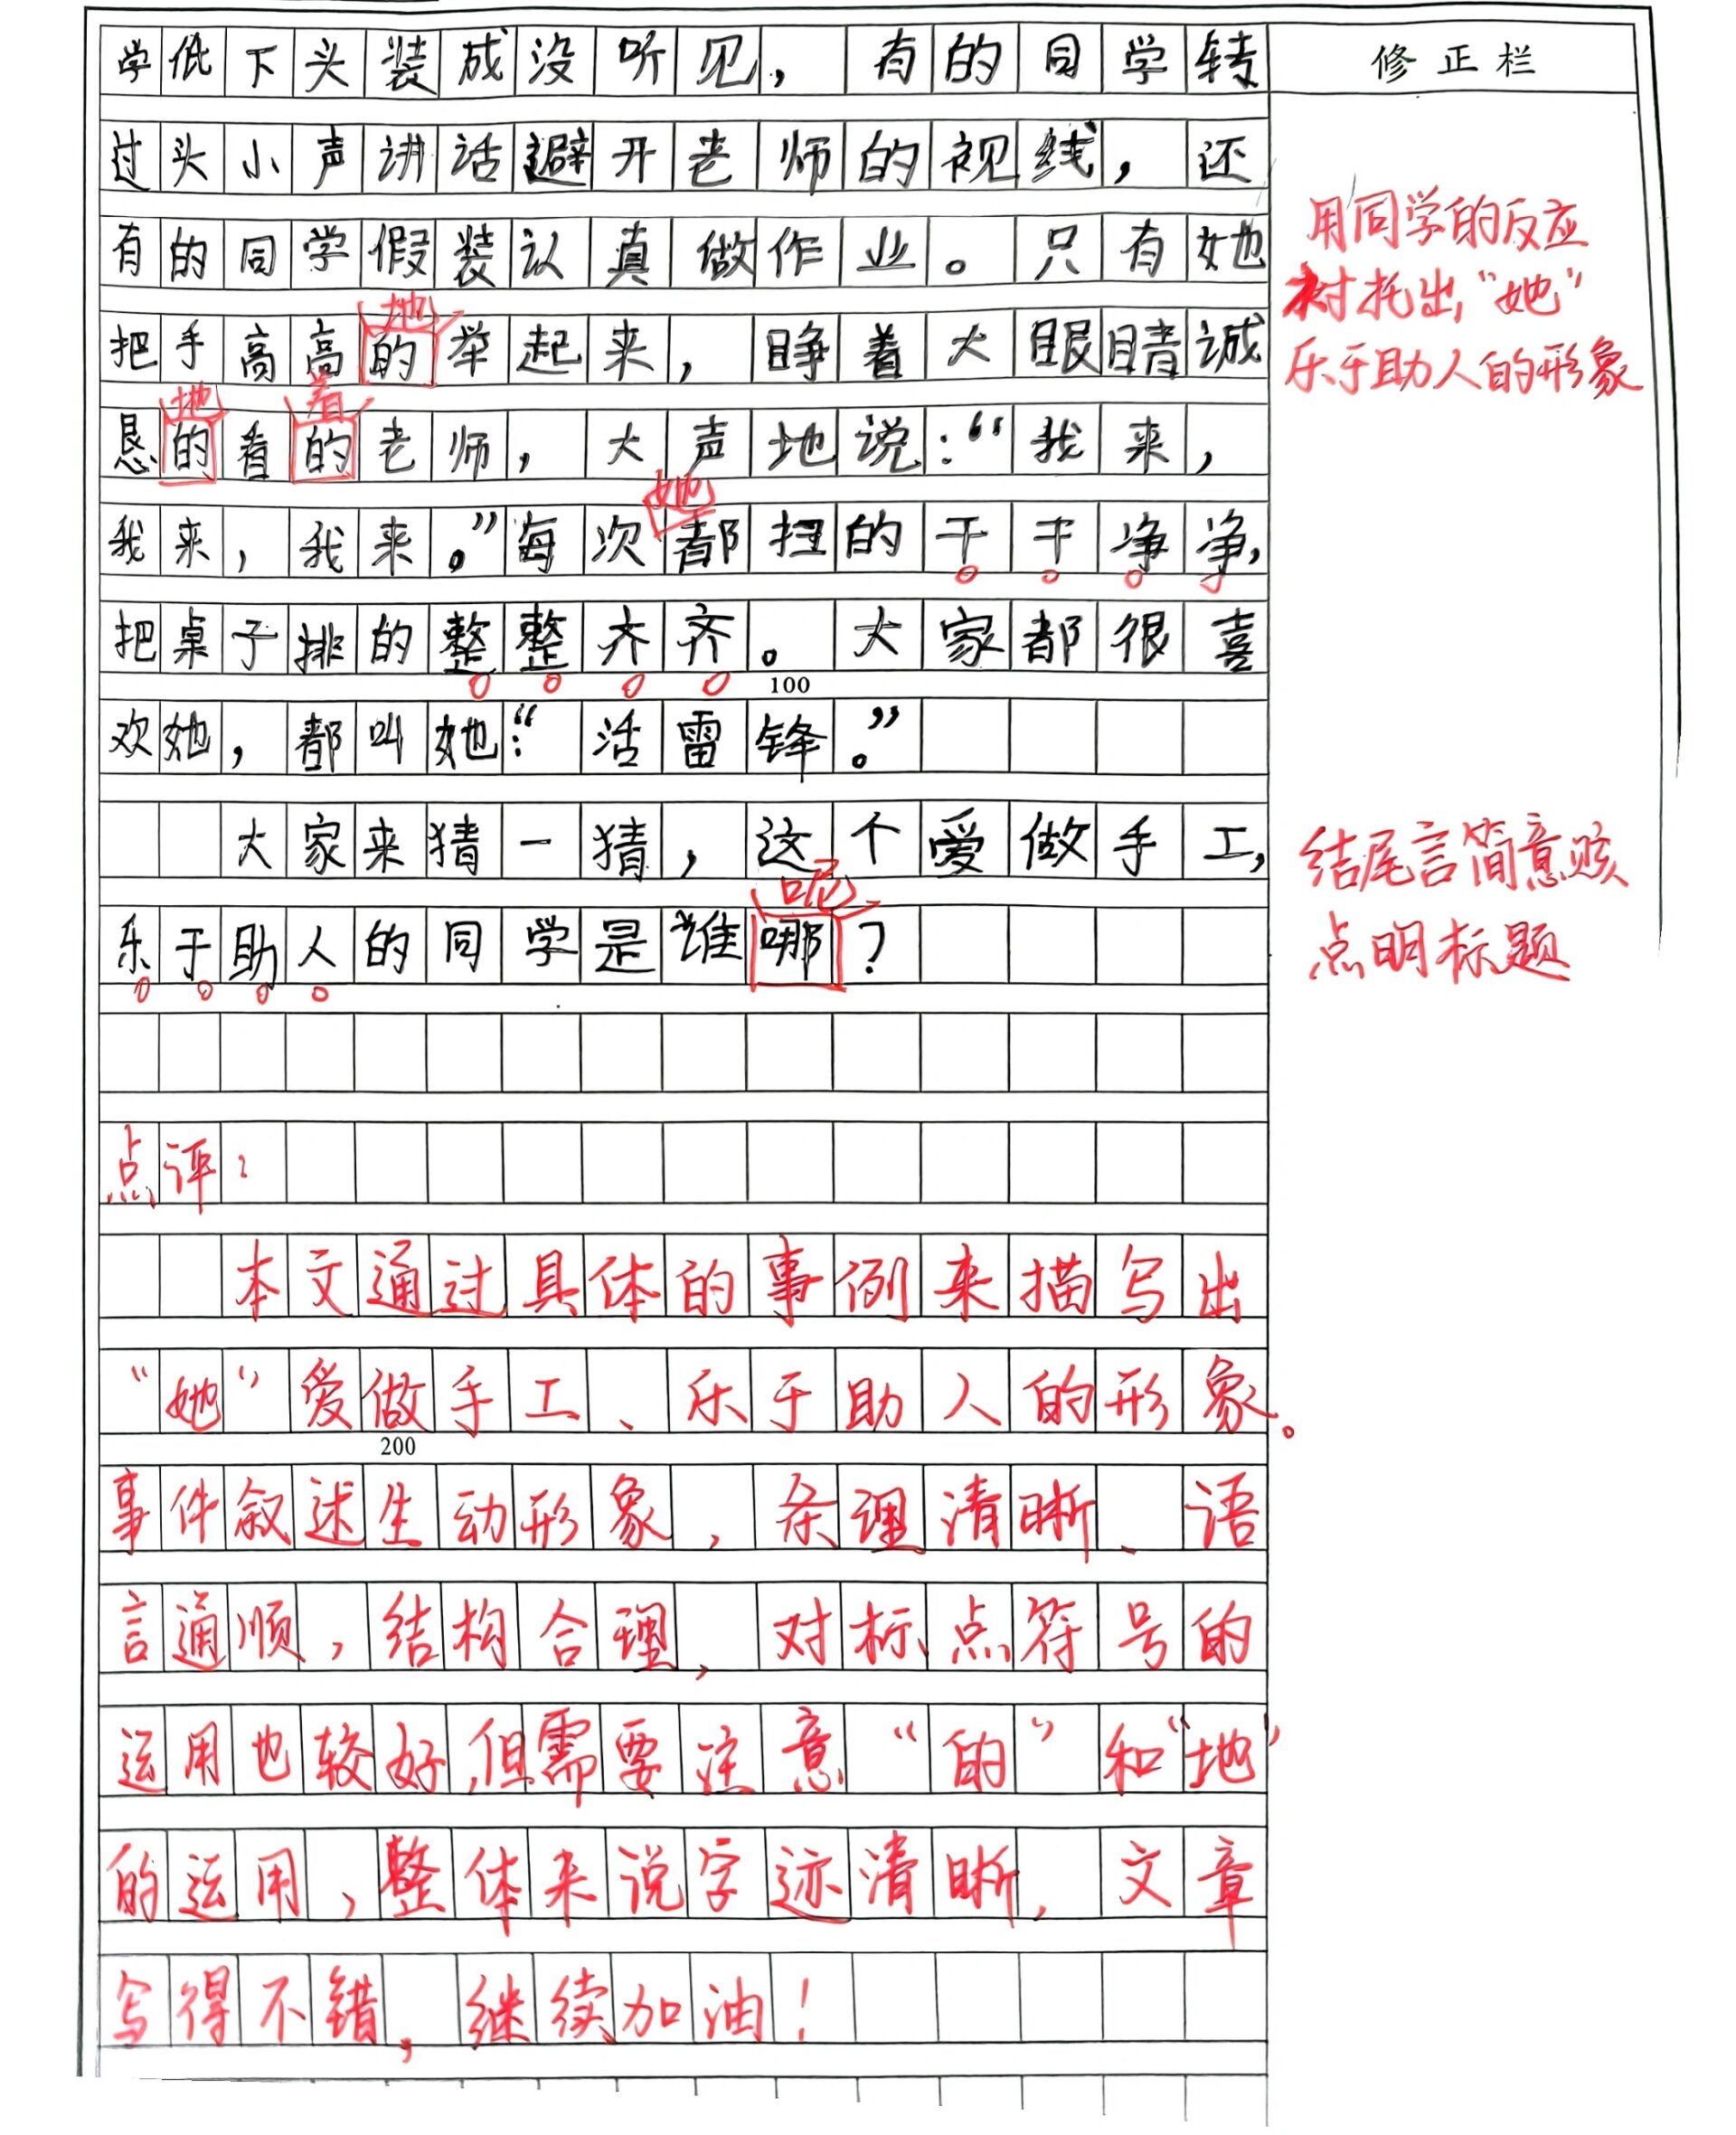 学低下头装成没听见，有的同学转
修正栏
过头小声讲话避开老师的视线，还
有的同学假装认真做作业。只有她
用同学的反应
衬托出“她”
乐于助人的形象
地
把手高高的举起来，睁着大眼睛诚
地 着
恳的看的老师，大声地说：“我来，
她
我来，我来。”每次都扫的干干净净，
把桌子排的整整齐齐。大家都很喜
100
欢她，都叫她：“活雷锋。”
大家来猜一猜，这个爱做手工，
呢
乐于助人的同学是谁哪？
结尾言简意赅
点明标题
点评：
本文通过具体的事例来描写出
“她”爱做手工、乐于助人的形象。
200
事件叙述生动形象，条理清晰、语
言通顺，结构合理，对标点符号的
运用也较好，但需要注意“的”和“地”
的运用，整体来说字迹清晰，文章
写得不错，继续加油！